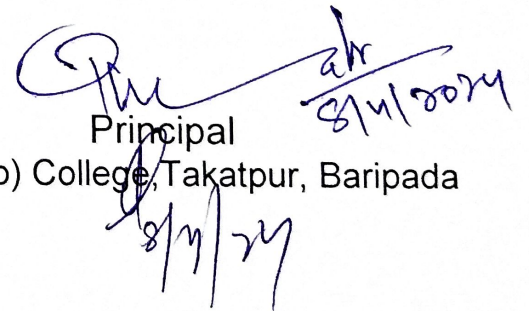 8/4/2024
Principal
o) College, Takatpur, Baripada
8/4/24